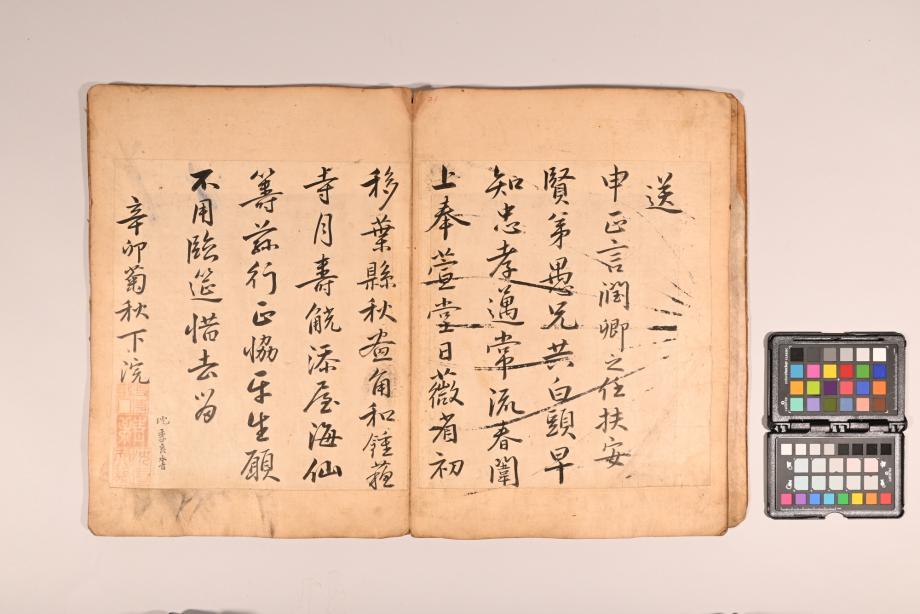 送
申正言潤卿之任扶安
賢弟愚兄共白頭早
知忠孝邁常流春闈
上奉萱堂日薇省初
移葉縣秋畫角和鍾蕭
寺月壽觥添屋海仙
籌茲行正協平生願
不用臨筵惜去留
辛卯菊秋下浣